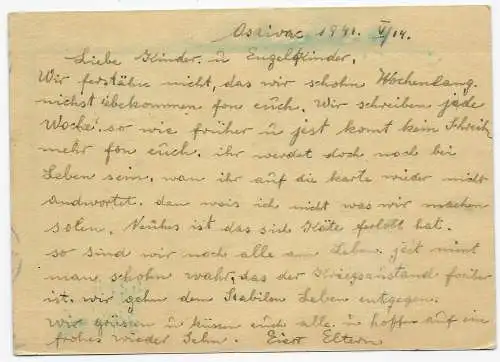 Oszivac 1941. V/14.
Liebe Kinder. u Enzelkinder.
Wir ferstähn nicht, das wir schohn Wochenlang.
nichst übekommen fon euch. Wir schreiben jede
Woche. so wie früher u jest komt kein Schreib
mehr fon euch. ihr werdet doch noch bei
Leben sein. wan ihr auf die karte wieder nicht
andwortet. dan weis ich nicht was wir machen
solen. Neuhes ist das sich Käte ferlobt hat.
so sind wir noch alle am Leben. jest nimt
man schohn wahr, das der Kriegszustand früher
ist. wir gehn dem Stabilen Leben entgegen.
Wir grüssen u küssen euch alle u hoffen auf ein
frohes wieder Sehn. Eure Eltern